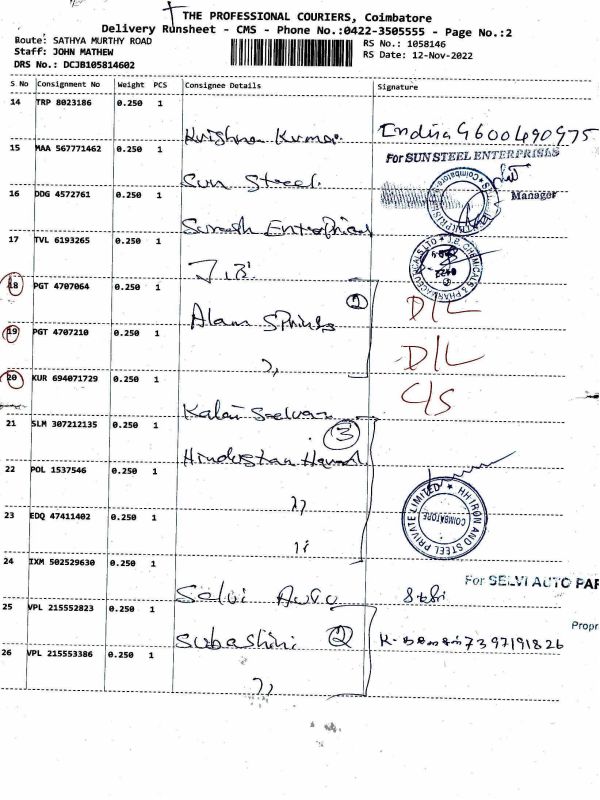 THE PROFESSIONAL COURIERS, Coimbatore
Delivery Runsheet - CMS - Phone No.:0422-3505555 - Page No.:2
Route: SATHYA MURTHY ROAD
RS No.: 1058146
Staff: JOHN MATHEW
RS Date: 12-Nov-2022
DRS No.: DCJB105814602
S No Consignment No Weight PCS Consignee Details Signature
14 TRP 8023186 0.250 1
Krishna Kumar. Indira 9600490975
15 MAA 567771462 0.250 1
For SUN STEEL ENTERPRISES
Sun Steel.
16 DDG 4572761 0.250 1
Manager
Suresh Enterprises
17 TVL 6193265 0.250 1
J.B.
18 PGT 4707064 0.250 1
2
Alam Sprints D/L
19 PGT 4707210 0.250 1
,, D/L
20 KUR 694071729 0.250 1
C/S
Kalai Selvan
21 SLM 307212135 0.250 1
3
Hindustan
22 POL 1537546 0.250 1
,,
HH IRON AND STEEL PRIVATE LIMITED
COIMBATORE
23 EDQ 47411402 0.250 1
,,
24 IXM 502529630 0.250 1
For SELVI AUTO PAR
Selvi Auto
25 VPL 215552823 0.250 1
Propr
Subashini 2
7397191826
26 VPL 215553386 0.250 1
,,